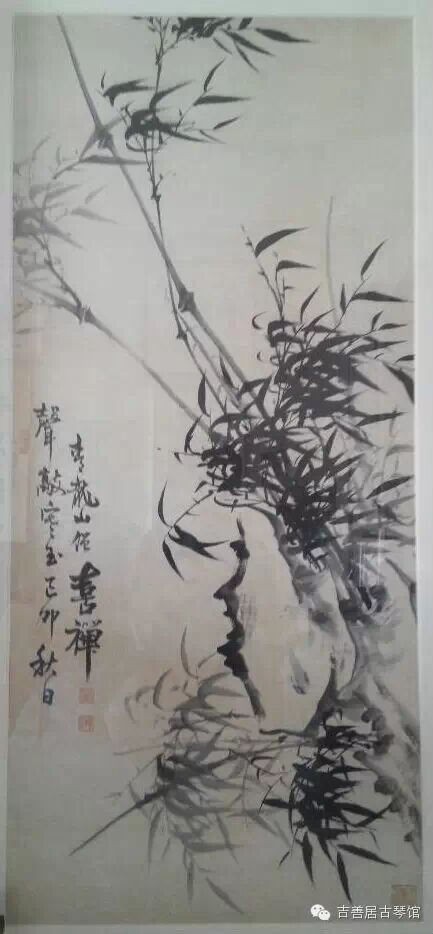 聲敲寒玉己卯秋日
青龍山僧喜禪
吉善居古琴馆